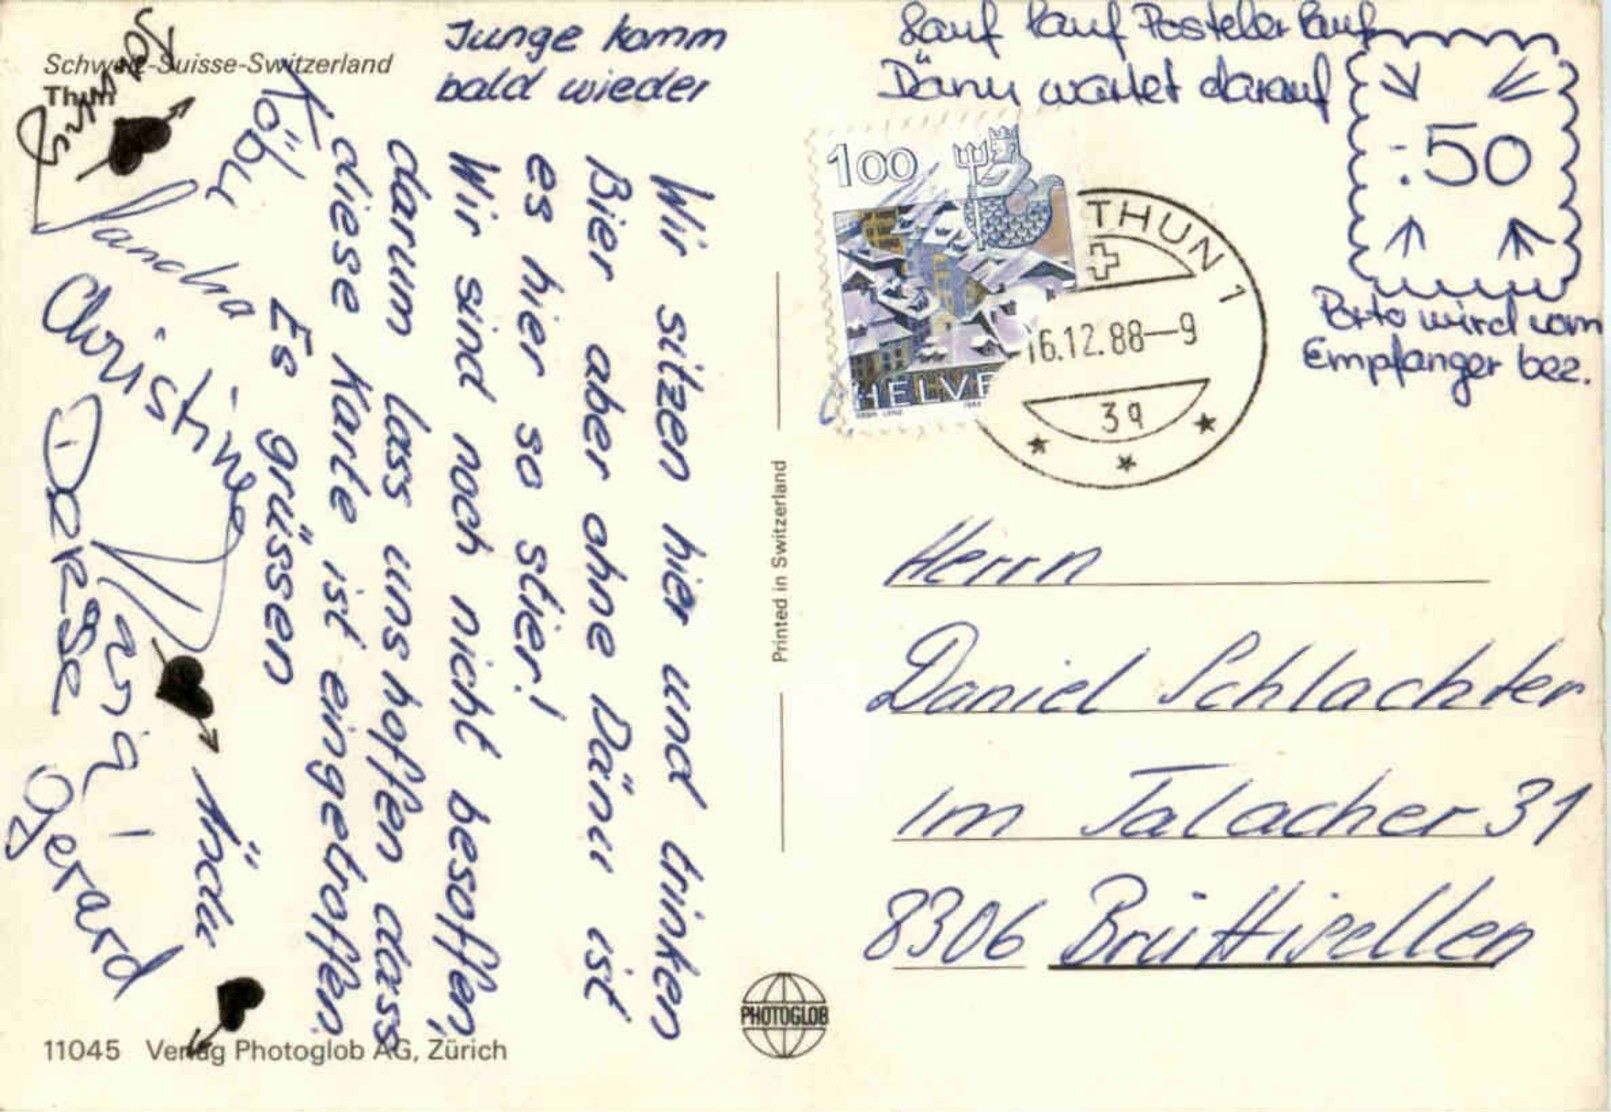 Schweiz-Suisse-Switzerland
Thun
Junge komm
bald wieder
Wir sitzen hier und trinken
Bier aber ohne Dänu ist
es hier so stier!
Wir sind noch nicht besoffen,
darum lass uns hoffen dass
diese Karte ist eingetroffen.
Es grüssen
Köbu
Sancha
Christine
Ändu
Gerard
11045 Verlag Photoglob AG, Zürich
Printed in Switzerland
PHOTOGLOB
Lauf lauf Pösteler lauf
Dänu wartet darauf
:50
Porto wird vom
Empfänger bez.
100
HELVE
THUN 1
16.12.88-9
3a
Herrn
Daniel Schlachter
im Talacher 31
8306 Brüttisellen